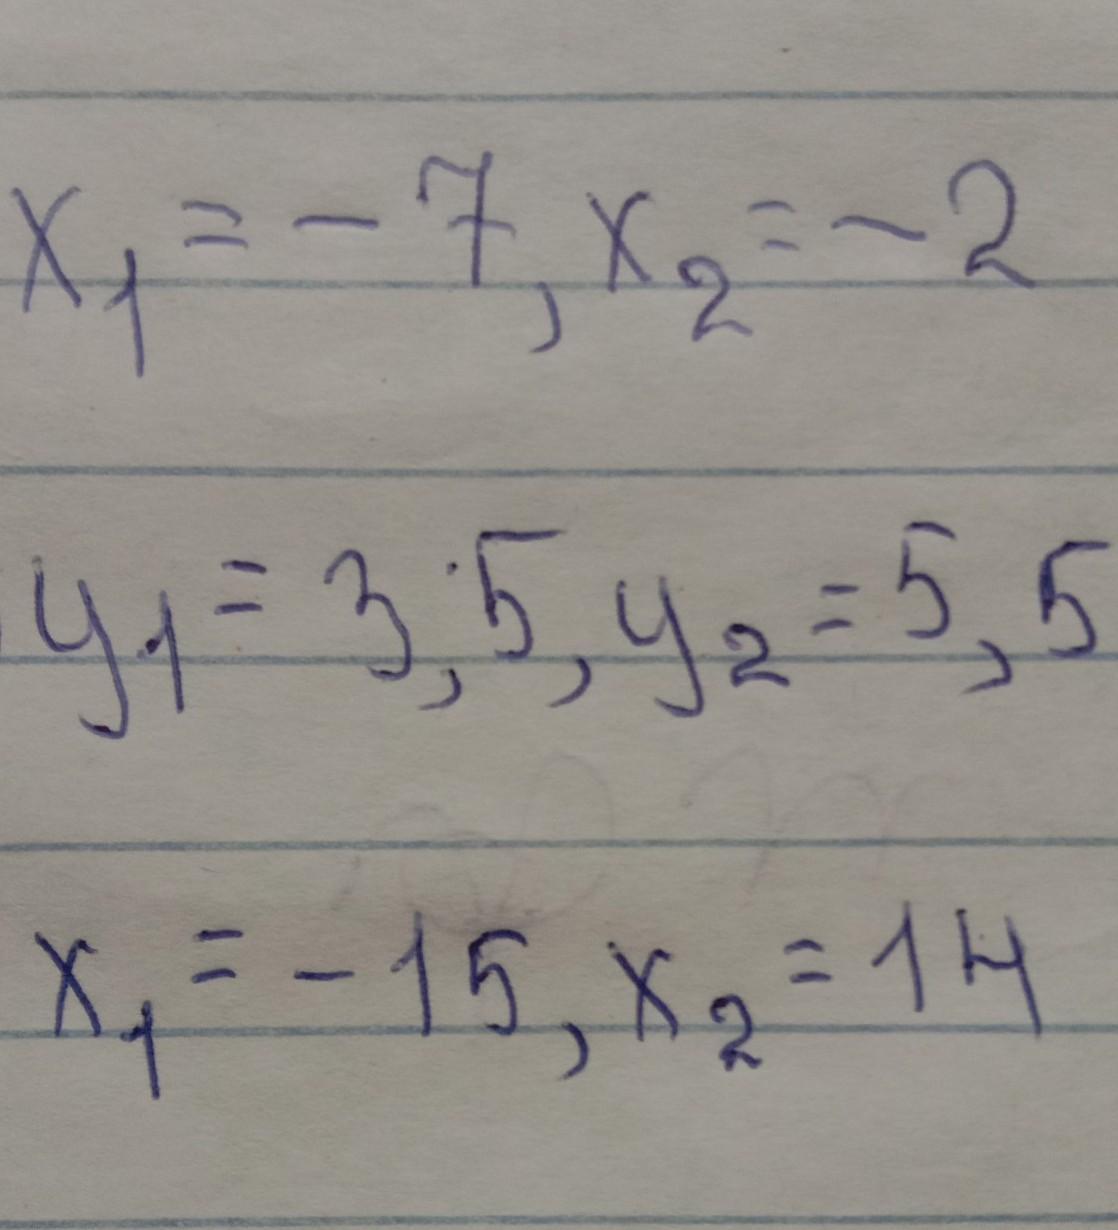 x₁ = -7, x₂ = -2
y₁ = 3,5, y₂ = 5,5
x₁ = -15, x₂ = 14